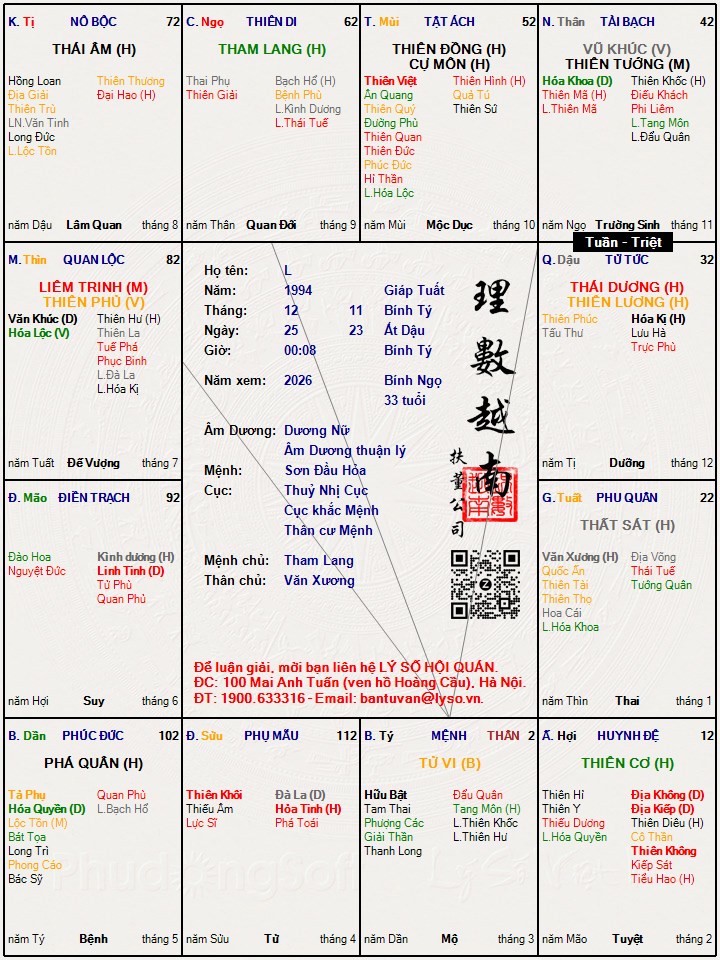 K. Tị NÔ BỘC 72
THÁI ÂM (H)
Hồng Loan Thiên Thương
Địa Giải Đại Hao (H)
Thiên Trù
LN.Văn Tinh
Long Đức
L.Lộc Tồn
năm Dậu Lâm Quan tháng 8
C. Ngọ THIÊN DI 62
THAM LANG (H)
Thai Phụ Bạch Hổ (H)
Thiên Giải Bệnh Phù
L.Kình Dương
L.Thái Tuế
năm Thân Quan Đới tháng 9
T. Mùi TẬT ÁCH 52
THIÊN ĐỒNG (H)
CỰ MÔN (H)
Thiên Việt Thiên Hình (H)
Ân Quang Quả Tú
Thiên Quý Thiên Sứ
Đường Phù
Thiên Quan
Thiên Đức
Phúc Đức
Hỉ Thần
L.Hóa Lộc
năm Mùi Mộc Dục tháng 10
N. Thân TÀI BẠCH 42
VŨ KHÚC (V)
THIÊN TƯỚNG (M)
Hóa Khoa (D) Thiên Khốc (H)
Thiên Mã (H) Điếu Khách
L.Thiên Mã Phi Liêm
L.Tang Môn
L.Đẩu Quân
năm Ngọ Trường Sinh tháng 11
Tuần - Triệt
M. Thìn QUAN LỘC 82
LIÊM TRINH (M)
THIÊN PHỦ (V)
Văn Khúc (D) Thiên Hư (H)
Hóa Lộc (V) Thiên La
Tuế Phá
Phục Binh
L.Đà La
L.Hóa Kị
năm Tuất Đế Vượng tháng 7
Họ tên: L
Năm: 1994 Giáp Tuất
Tháng: 12 11 Bính Tý
Ngày: 25 23 Ất Dậu
Giờ: 00:08 Bính Tý
Năm xem: 2026 Bính Ngọ
33 tuổi
Âm Dương: Dương Nữ
Âm Dương thuận lý
Mệnh: Sơn Đầu Hỏa
Cục: Thuỷ Nhị Cục
Cục khắc Mệnh
Thân cư Mệnh
Mệnh chủ: Tham Lang
Thân chủ: Văn Xương
理數越南
扶董公司
Để luận giải, mời bạn liên hệ LÝ SỐ HỘI QUÁN.
ĐC: 100 Mai Anh Tuấn (ven hồ Hoàng Cầu), Hà Nội.
ĐT: 1900.633316 - Email: bantuvan@lyso.vn.
Q. Dậu TỬ TỨC 32
THÁI DƯƠNG (H)
THIÊN LƯƠNG (H)
Thiên Phúc Hóa Kị (H)
Tấu Thư Lưu Hà
Trực Phù
năm Tị Dưỡng tháng 12
Đ. Mão ĐIỀN TRẠCH 92
Đào Hoa Kình dương (H)
Nguyệt Đức Linh Tinh (D)
Tử Phù
Quan Phủ
năm Hợi Suy tháng 6
G. Tuất PHU QUÂN 22
THẤT SÁT (H)
Văn Xương (H) Địa Võng
Quốc Ấn Thái Tuế
Thiên Tài Tướng Quân
Thiên Thọ
Hoa Cái
L.Hóa Khoa
năm Thìn Thai tháng 1
B. Dần PHÚC ĐỨC 102
PHÁ QUÂN (H)
Tả Phụ Quan Phù
Hóa Quyền (D) L.Bạch Hổ
Lộc Tồn (M)
Bát Tọa
Long Trì
Phong Cáo
Bác Sỹ
năm Tý Bệnh tháng 5
Đ. Sửu PHỤ MẪU 112
Thiên Khôi Đà La (D)
Thiếu Âm Hỏa Tinh (H)
Lực Sĩ Phá Toái
năm Sửu Tử tháng 4
B. Tý MỆNH THÂN 2
TỬ VI (B)
Hữu Bật Đẩu Quân
Tam Thai Tang Môn (H)
Phượng Các L.Thiên Khốc
Giải Thần L.Thiên Hư
Thanh Long
năm Dần Mộ tháng 3
Ấ. Hợi HUYNH ĐỆ 12
THIÊN CƠ (H)
Thiên Hỉ Địa Không (D)
Thiên Y Địa Kiếp (D)
Thiếu Dương Thiên Diêu (H)
L.Hóa Quyền Cô Thần
Thiên Không
Kiếp Sát
Tiểu Hao (H)
năm Mão Tuyệt tháng 2